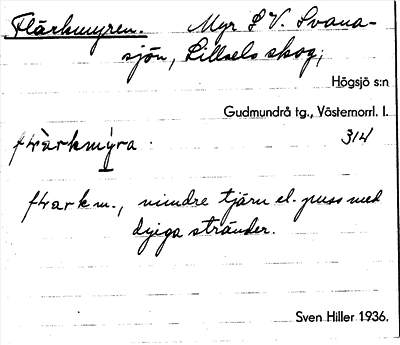 Flärkmyren. Myr S V. Svana-
sjön, Lillsels skog;
Högsjö s:n
Gudmundrå tg., Västernorrl. l.
314
flärkmýra
flark m., mindre tjärn el. puss med
dyiga stränder.
Sven Hiller 1936.